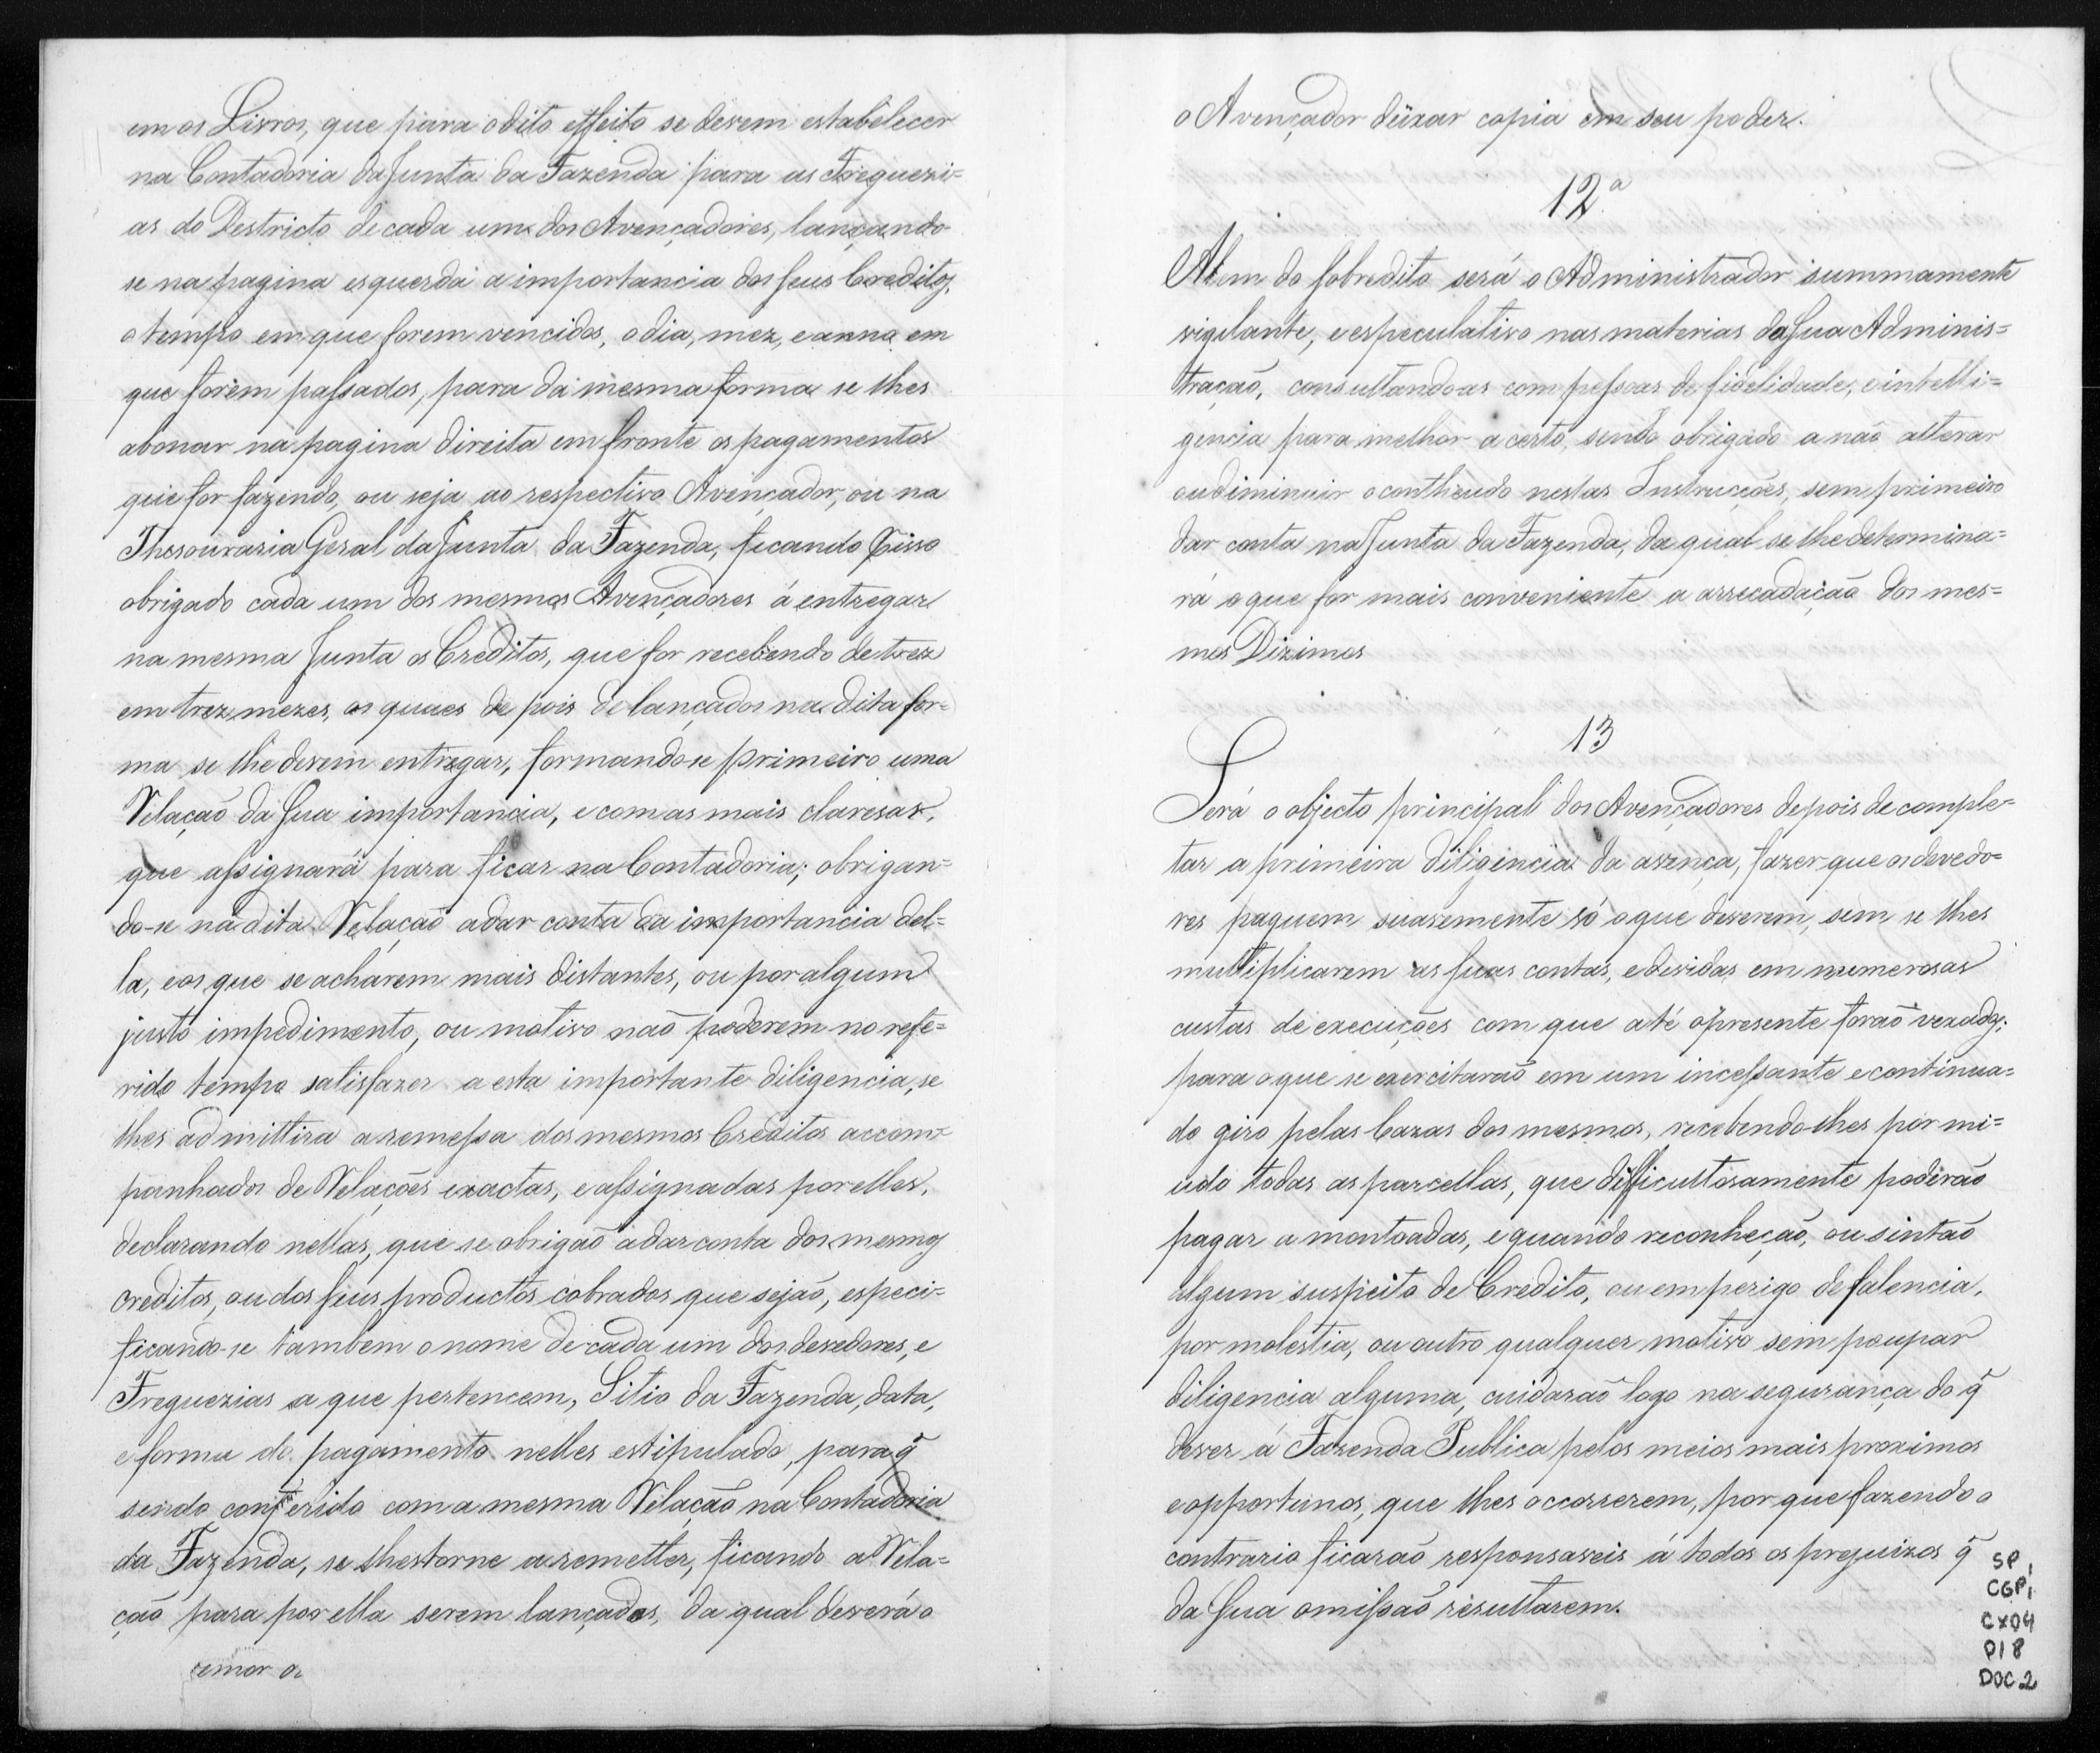 em os Livros, que para o dito effeito se devem estabelecer
na Contadoria da Junta da Fazenda para as Freguezi=
as do Destricto de cada um dos Avençadores, lançando-
se na pagina esquerda a importancia dos seus Creditos,
o tempo em que forem vencidos, o dia, mez, e anno em
que forem passados, para da mesma forma se lhes
abonar na pagina direita em fronte os pagamentos
que for fazendo, ou seja ao respectivo Avençador, ou na
Thesouraria Geral da Junta da Fazenda, ficando pisso
obrigado cada um dos mesmos Avençadores á entregar
na mesma Junta os Creditos, que for recebendo de trez
em trez mezes, os quaes de pois de lançados na dita for=
ma se lhe devem entregar, formando-se primeiro uma
Relação da sua importancia, e com as mais claresas,
que assignará para ficar na Contadoria; obrigan=
do-se na dita Relação a dar conta da importancia del=
la, e os que se acharem mais distantes, ou por algum
justo impedimento, ou motivo não poderem no refe=
rido tempo satisfazer a esta importante diligencia, se
lhes admittira a remessa dos mesmos Creditos accom=
panhados de Relações exactas, e assignadas por elles,
declarando nellas, que se obrigão a dar conta dos mesmos
creditos, ou dos seus productos cobrados que sejão, especi=
ficando-se tambem o nome de cada um dos devedores, e
Freguezias a que pertencem, Sitio da Fazenda, data,
e forma do pagamento nelles estipulado, para q̃
sendo conferido com a mesma Relação na Contadoria
da Fazenda, se lhes torne a remetter, ficando a Rela=
ção para por ella serem lançados, da qual deverá o
o Avençador deixar copia em seu poder.
12.ª
Alem do sobredito será o Administrador summamente
vigilante, e especulativo nas materias da sua Adminis=
tração, consultando-as com pessoas de fidelidade, e intelli=
gencia para melhor acerto, sendo obrigado a não alterar
ou diminuir o contheudo nestas Instrucções, sem primeiro
dar conta na Junta da Fazenda, da qual se lhe determina=
rá o que for mais conveniente a arrecadação dos mes=
mos Dizimos
13
Será o objecto principal dos Avençadores depois de comple=
tar a primeira diligencia da avença, fazer que os devedo=
res paguem suavemente só o que deverem, sem se lhes
multiplicarem as suas contas, e dividas em numerosas
custas de execuções com que até o presente forão vexados;
para o que se exercitarão em um incessante e continua=
do giro pelas Cazas dos mesmos, recebendo lhes por mi=
udo todas as parcellas, que difficultosamente poderão
pagar a montoadas, e quando reconheção, ou sintão
algum suspeito de Credito, ou em perigo de falencia,
por molestia, ou outro qualquer motivo sem poupar
diligencia alguma, cuidarão logo na segurança do q̃
dever á Fazenda Publica pelos meios mais proximos
e opportunos, que lhes occorrerem, por que fazendo o
contrario ficarão responsaveis á todos os prejuizos q̃
da sua omissão resultarem.
SP,
CGP,
Cx04
P18
DOC 2